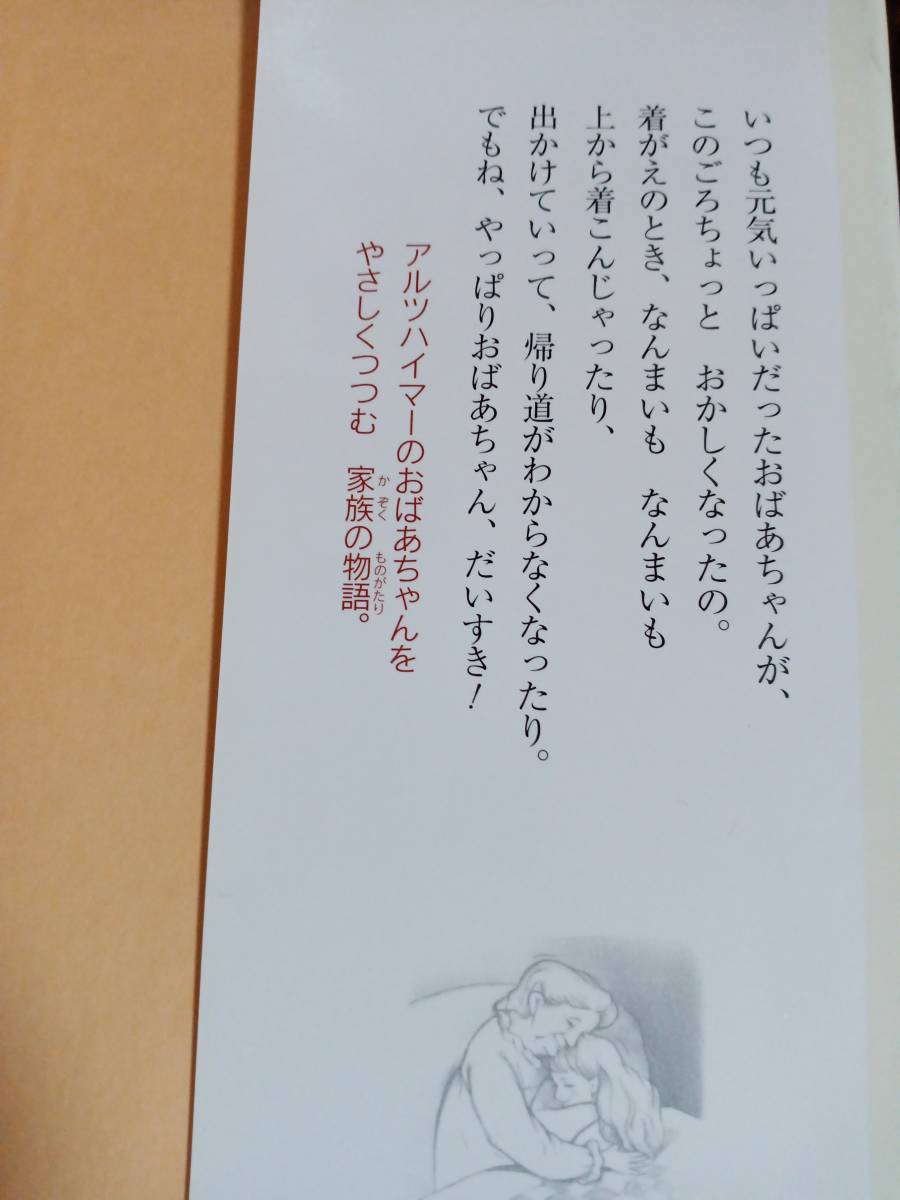 いつも元気いっぱいだったおばあちゃんが、
このごろちょっと　おかしくなったの。
着がえのとき、なんまいも　なんまいも
上から着こんじゃったり、
出かけていって、帰り道がわからなくなったり。
でもね、やっぱりおばあちゃん、だいすき！
アルツハイマーのおばあちゃんを
やさしくつつむ　家族の物語。
かぞく
ものがたり